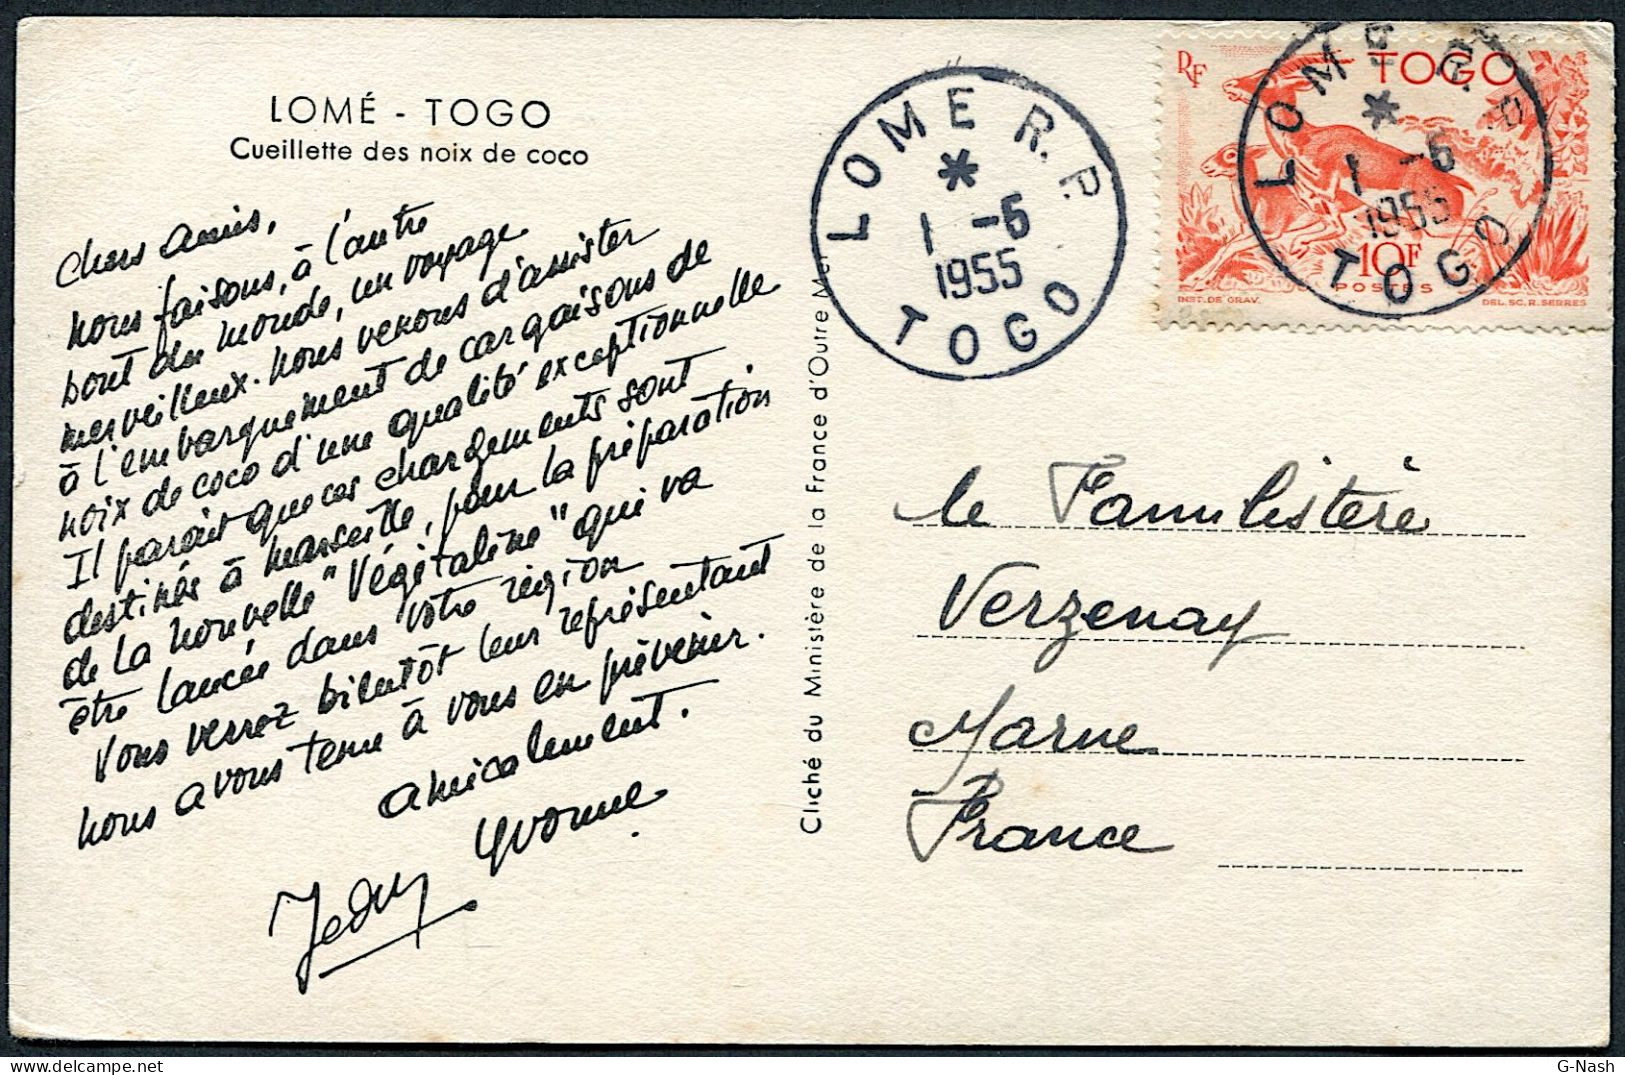 LOMÉ - TOGO
Cueillette des noix de coco
Chers amis,
nous faisons, à l'autre
bout du monde, un voyage
merveilleux. Nous venons d'assister
à l'embarquement de cargaisons de
noix de coco d'une qualité exceptionnelle.
Il parait que ces chargements sont
destinés à Marseille, pour la préparation
de la nouvelle "Végétaline" qui va
être lancée dans votre région
Vous verrez bientôt leur représentant
nous avons tenu à vous en prévenir.
amicalement.
Yvonne
Jedy
Cliché du Ministère de la France d'Outre Mer
LOME R.P.
1 -6
1955
TOGO
RF
TOGO
10F
POSTES
INST. DE GRAV.
DEL. SC. R. SERRES
LOME R.P.
1 -6
1955
TOGO
le Familistère
Verzenay
Marne
France
G-Nash